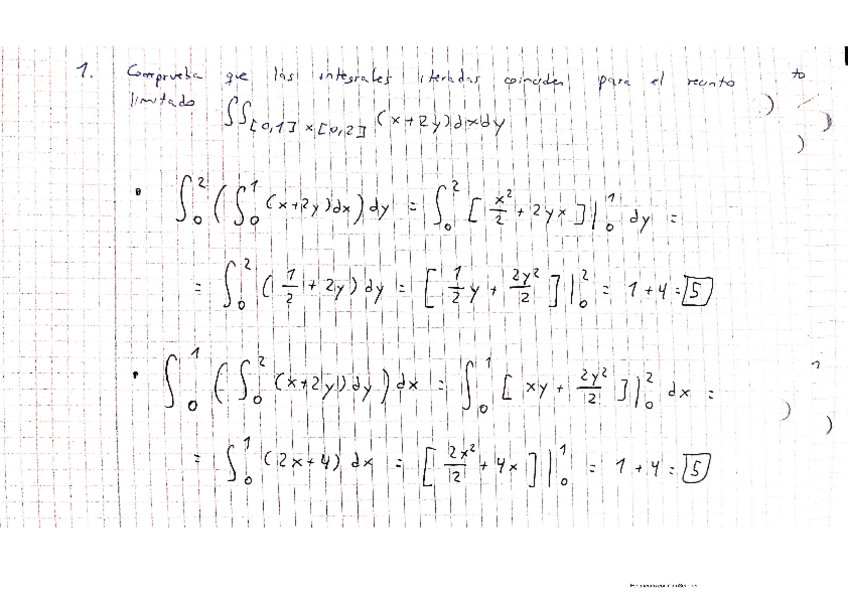 1. Comprueba que las integrales iteradas coinciden para el recinto
limitado ∫∫_{[0,1]×[0,2]} (x+2y)dxdy
• ∫_0^2 (∫_0^1 (x+2y)dx) dy = ∫_0^2 [x²/2 + 2yx]|_0^1 dy =
= ∫_0^2 (1/2 + 2y) dy = [1/2 y + 2y²/2]|_0^2 = 1+4 = 5
• ∫_0^1 (∫_0^2 (x+2y)dy) dx = ∫_0^1 [xy + 2y²/2]|_0^2 dx =
= ∫_0^1 (2x+4) dx = [2x²/2 + 4x]|_0^1 = 1+4 = 5